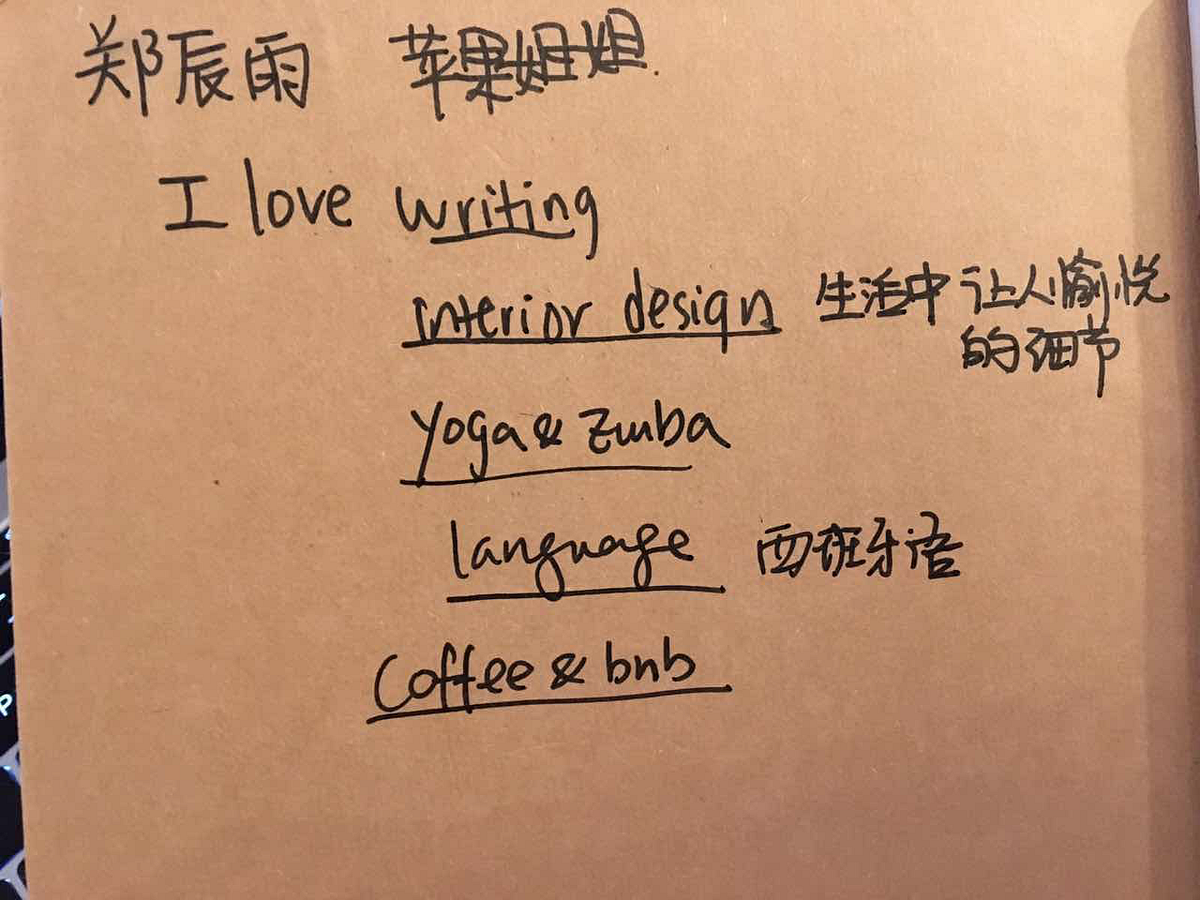 郑辰雨 苹果姐姐.
I love writing
interior design 生活中让人愉悦
的细节
Yoga & Zumba
language 西班牙语
Coffee & bnb